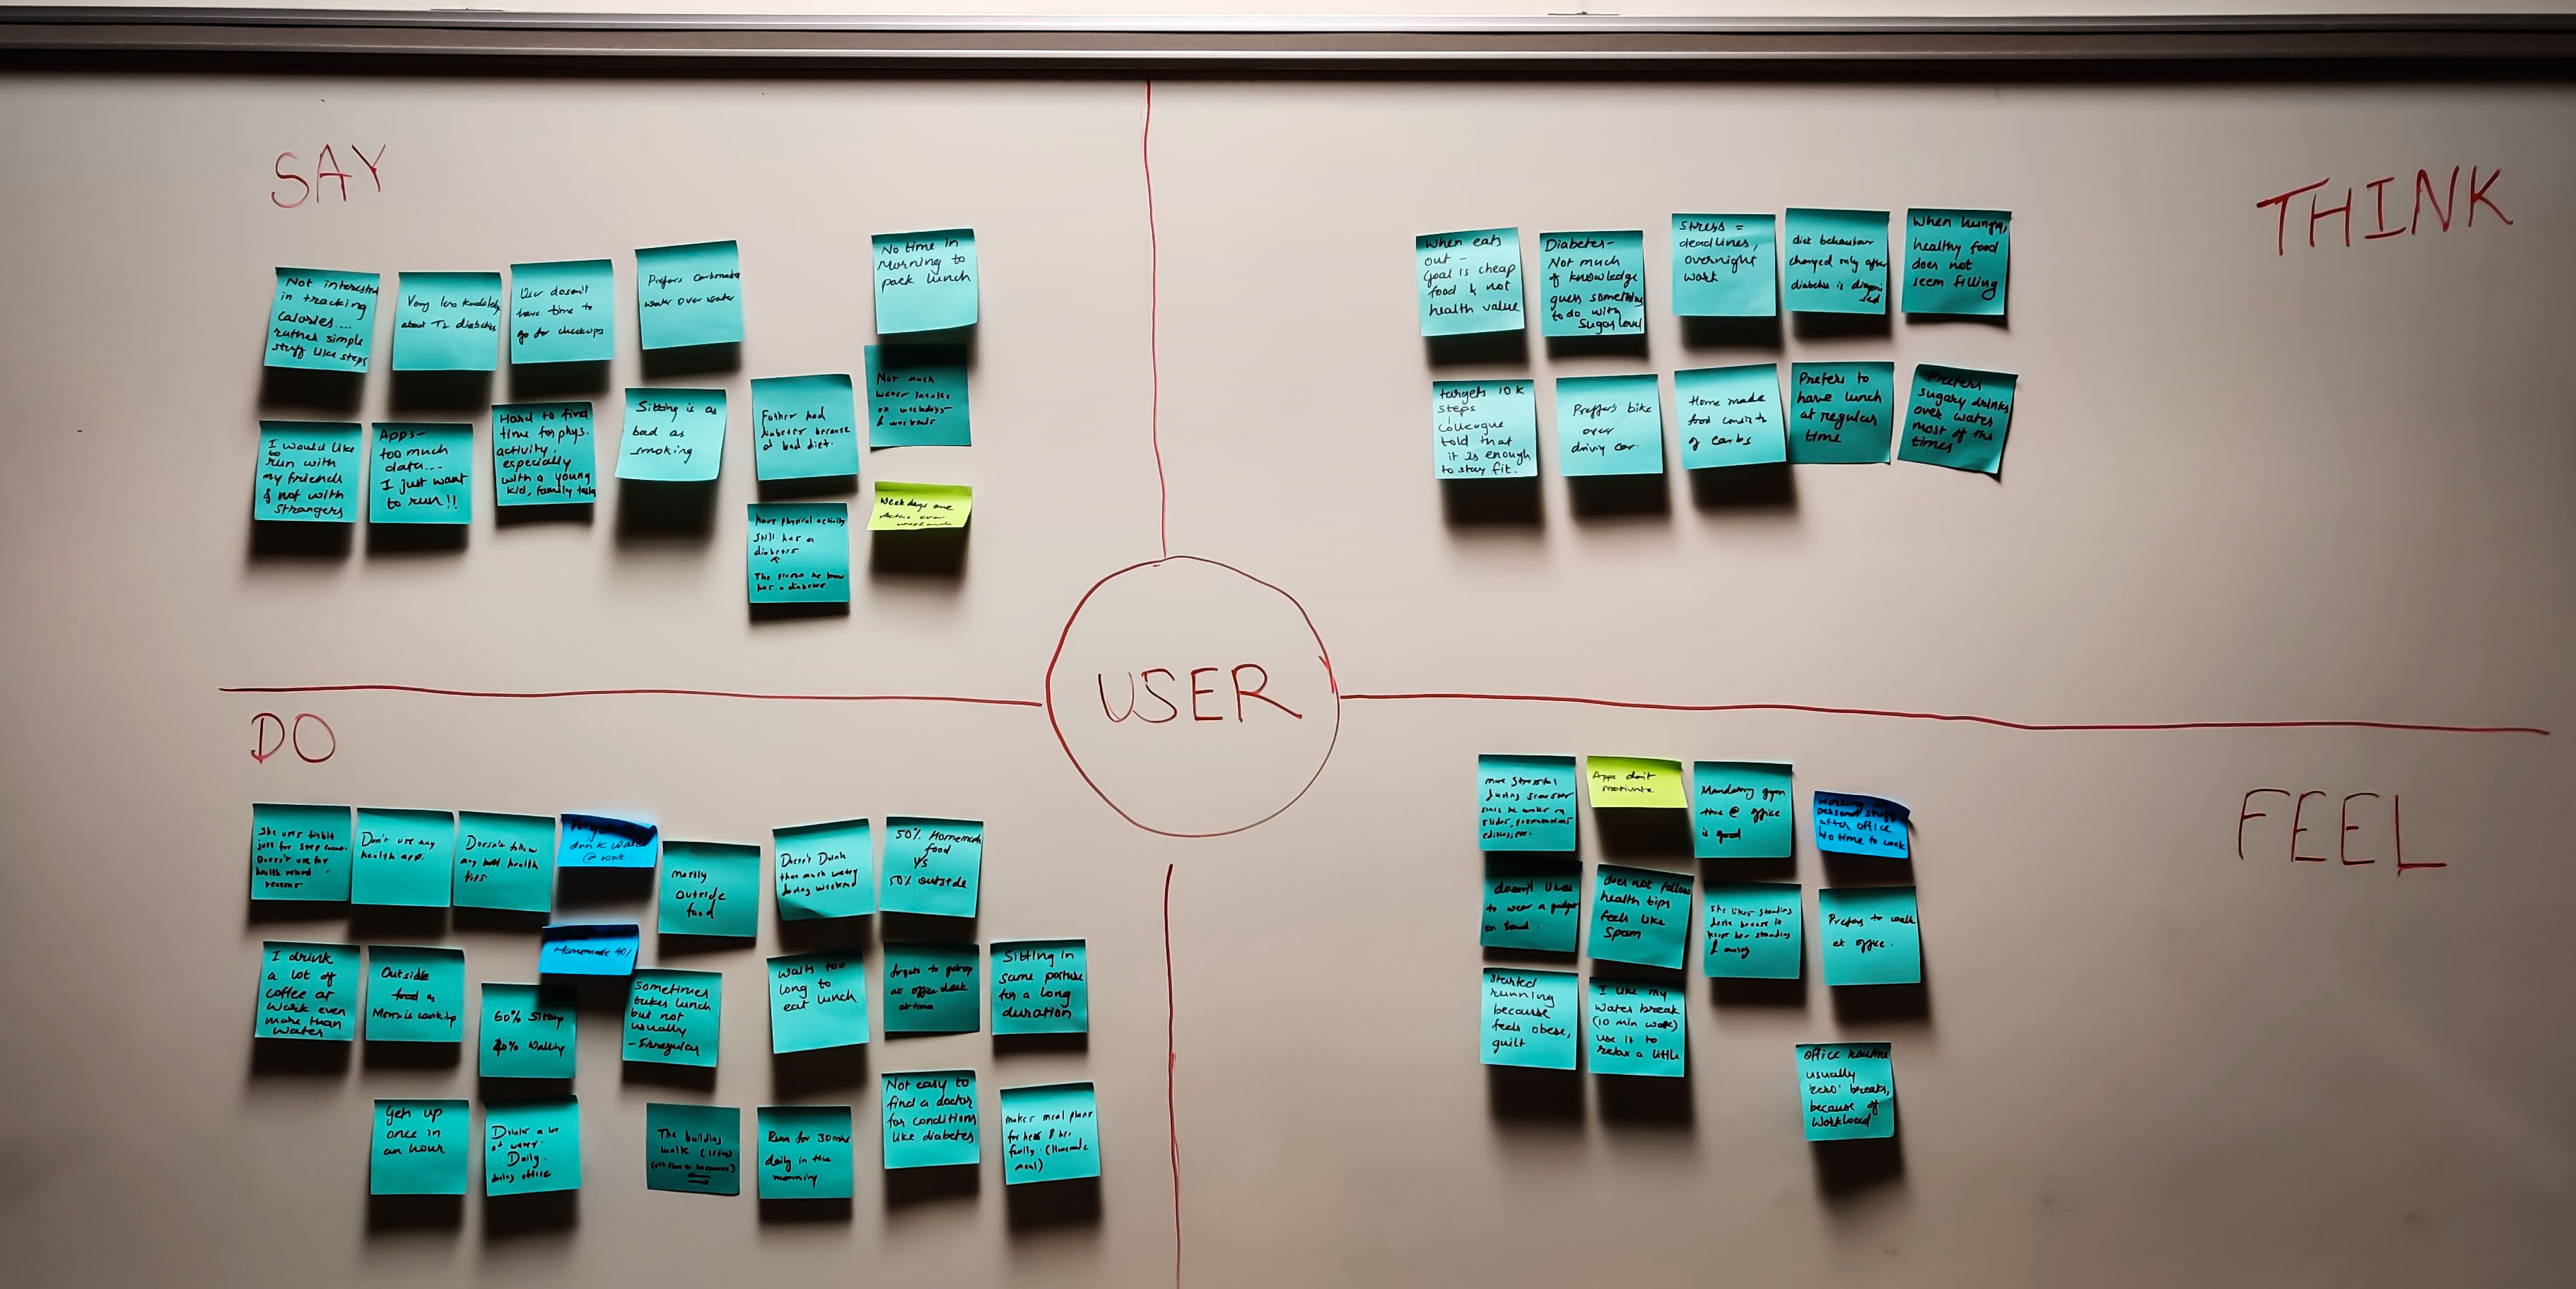 SAY
Not interested
in tracking
calories....
rather simple
stuff like steps
Very less
about T2 diabetes
User doesn't
have time to
go for checkups
Prefers carbonated
water over water
No time in
Morning to
pack lunch
I would like
to
run with
my friends
& not with
strangers
Apps-
too much
data...
I just want
to run!!
Hard to find
time for phys.
activity,
especially
with a young
kid, family tasks
Sitting is as
bad as
smoking
Father had
diabetes because
of bad diet.
Not much
water intake
on weekdays
& weekends
have physical activity
Still has a
diabetes
The person he know
has a diabetes
Weekdays are
Active over
weekends
THINK
When eats
out -
Goal is cheap
food & not
health value
Diabetes-
Not much
of knowledge
guess something
to do with
Sugar level
Stress =
deadlines,
overnight
work
diet behaviour
changed only after
diabetes is diagno
sed
When hungry,
healthy food
does not
seem filling
targets 10k
steps
Colleague
told that
it is enough
to stay fit.
Preffers bike
over
driving car.
Home made
food consists
of carbs
Prefers to
have lunch
at regular
time
Prefers
sugary drinks
over water
most of the
times
USER
DO
She uses fitbit
just for step count.
Doesn't use for
health related
reasons
Don't use any
health app.
Doesn't follow
any health
tips
drink water
@ work
mostly
outside
food
Doesn't Drink
that much water
during weekend
50% Homemade
food
vs
50% outside
I drink
a lot of
coffee at
work even
more than
water
Outside
food as
Mom is cooking
Homemade 40%
60% Sitting
40% Walking
Sometimes
takes lunch
but not
usually
- Irregular
waits too
long to
eat lunch
forgets to getup
at office desk
at time
Sitting in
same posture
for a long
duration
Gets up
once in
an hour
Drinks a lot
of water
Daily
during office
The building
walk
Run for 30 mins
daily in the
morning
Not easy to
find a doctor
for conditions
like diabetes
makes meal plans
for her & her
family. (Homemade
meal)
FEEL
more stressful
during semester
since he works on
slides, presentations
editing, etc.
Apps don't
motivate
Mandatory gym
time @ office
is good
Working on
personal stuff
after office
No time to cook
doesn't likes
to wear a gadget
on hand.
does not follow
health tips
feels like
Spam
She likes standing
desk because it
keeps her standing
& moving
Prefers to walk
at office.
Started
running
because
feels obese,
guilt
I like my
water break
(10 min walk)
use it to
relax a little
Office routine
usually
'zero' breaks,
because of
workload